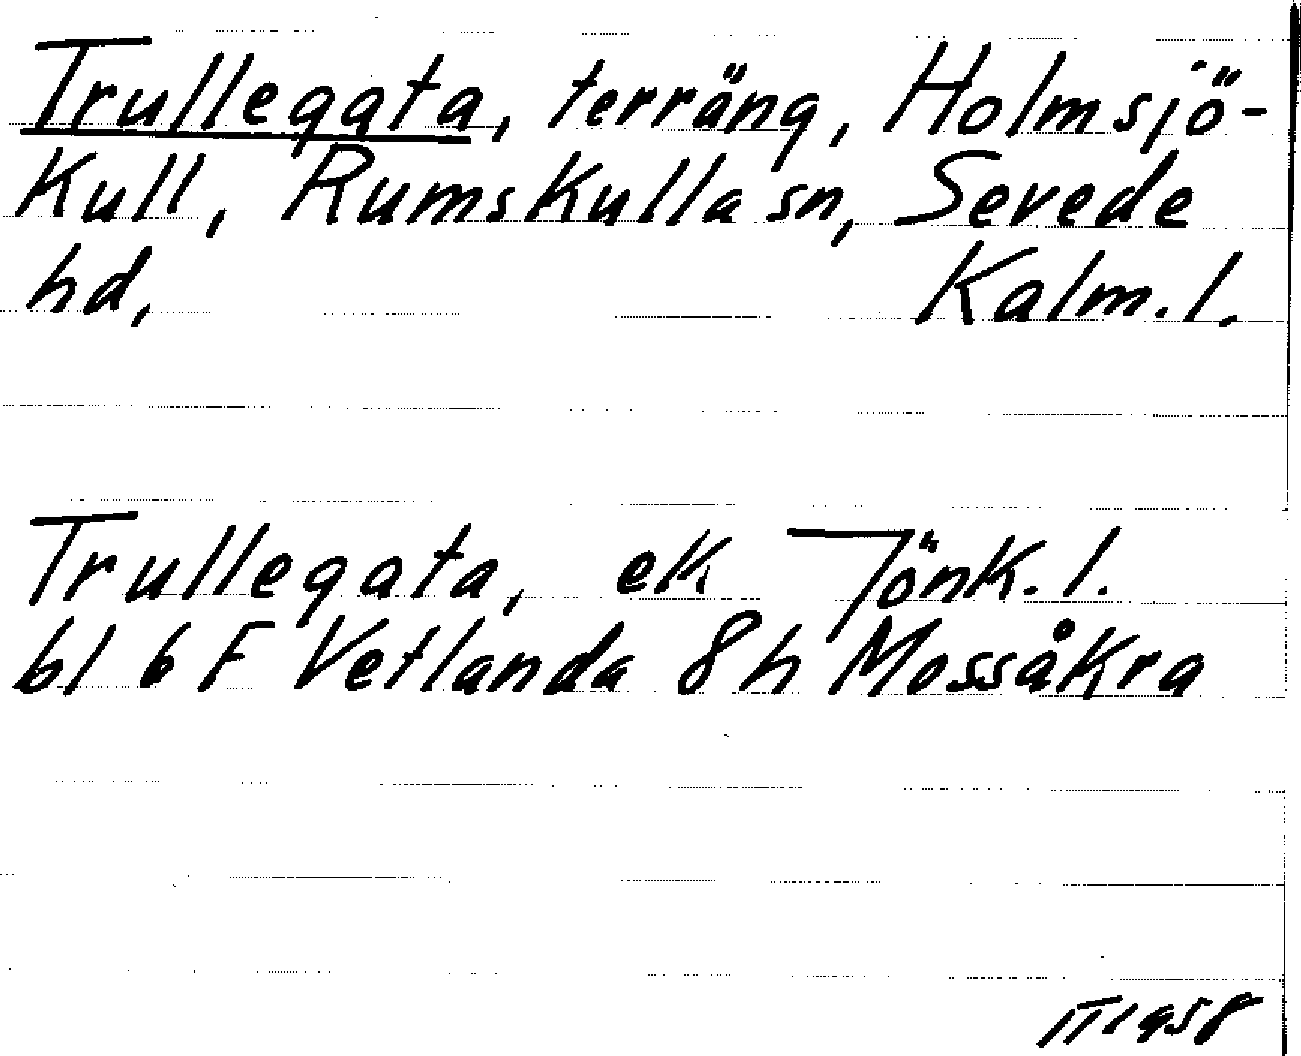 Trullegata, terräng, Holmsjö-
kull, Rumskulla sn, Sevede
hd, Kalm.l.
Trullegata, ek Jönk.l.
bl 6 F Vetlanda 8h Mossåkra
IT 1958